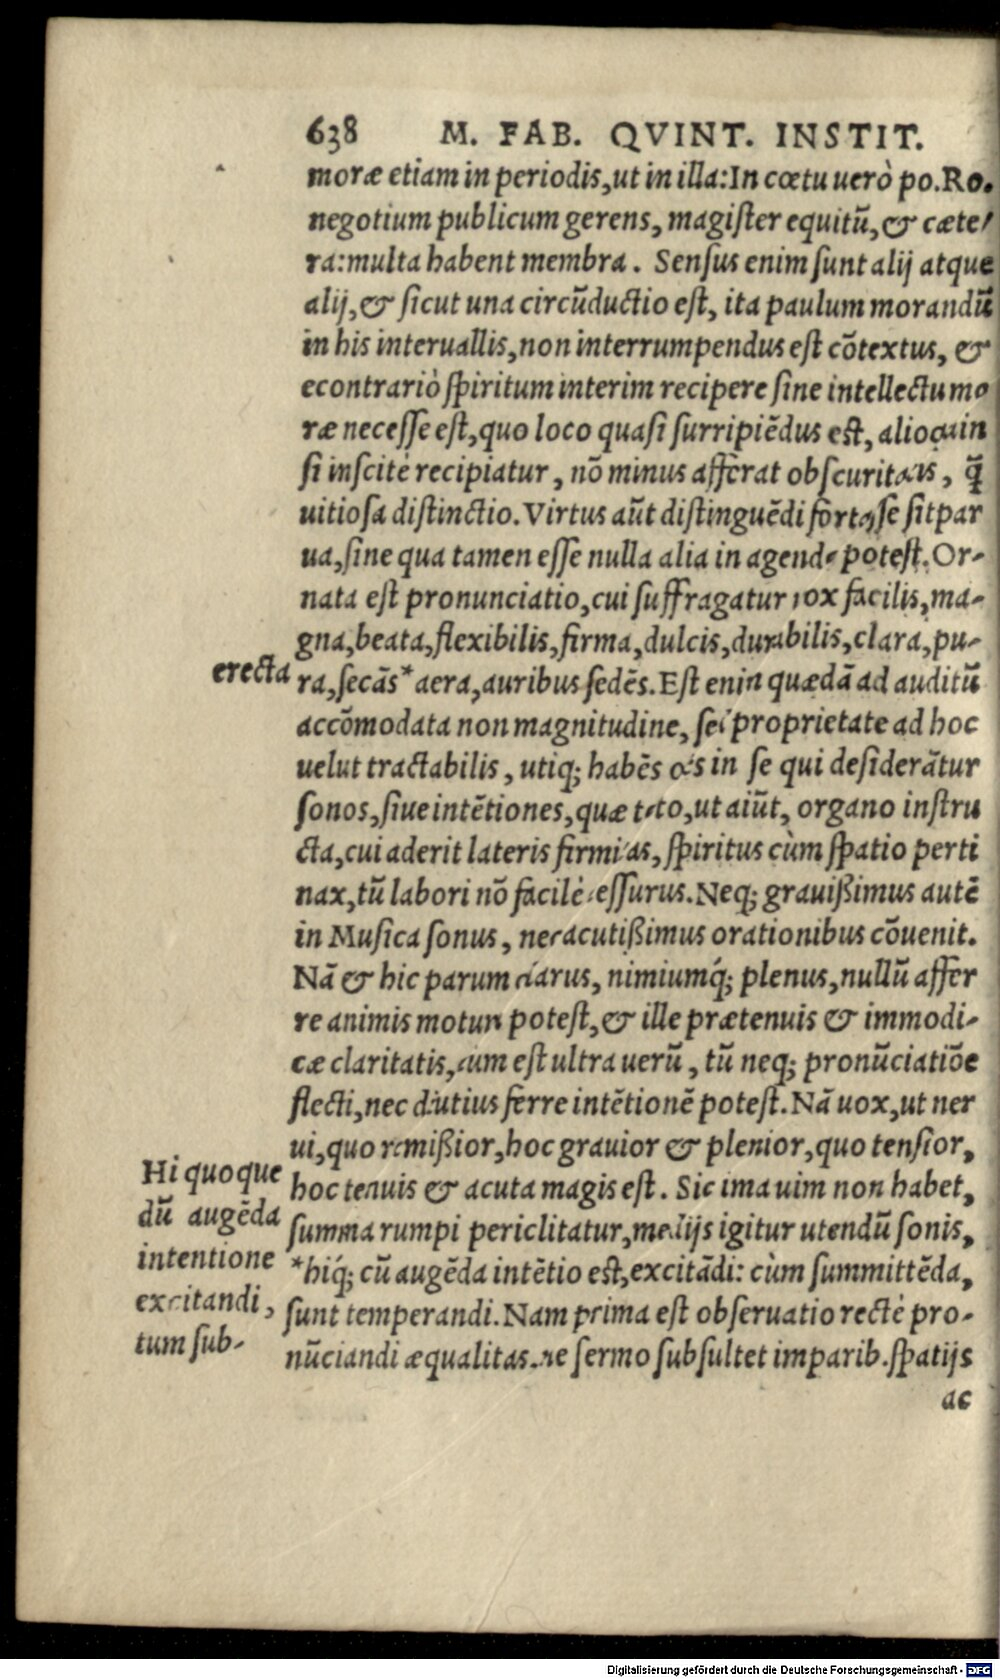 638 M. FAB. QVINT. INSTIT.
moræ etiam in periodis, ut in illa: In cœtu uerò po. Ro.
negotium publicum gerens, magiſter equitũ, & cæte/
ra: multa habent membra. Senſus enim ſunt alij atque
alij, & ſicut una circũductio eſt, ita paulum morandũ
in his interuallis, non interrumpendus eſt cõtextus, &
econtrariò ſpiritum interim recipere ſine intellectu mo
ræ neceſſe eſt, quo loco quaſi ſurripiẽdus eſt, alioquin
ſi inſcitè recipiatur, nõ minus afferat obſcuritatis, q̃
uitioſa diſtinctio. Virtus aũt diſtinguẽdi fortaſſe ſit par
ua, ſine qua tamen eſſe nulla alia in agendo poteſt. Or-
nata eſt pronunciatio, cui ſuffragatur uox facilis, ma-
gna, beata, flexibilis, firma, dulcis, durabilis, clara, pu-
erecta
ra, ſecãs* aera, auribus ſedẽs. Eſt enim quædã ad auditũ
accõmodata non magnitudine, ſed proprietate ad hoc
uelut tractabilis, utiq; habẽs oẽs in ſe qui deſiderãtur
ſonos, ſiue intẽtiones, quæ toto, ut aiũt, organo inſtru
cta, cui aderit lateris firmitas, ſpiritus cùm ſpatio perti
nax, tũ labori nõ facilè ceſſurus. Neq; grauißimus autẽ
in Muſica ſonus, nec acutißimus orationibus cõuenit.
Nã & hic parum clarus, nimiumq́; plenus, nullũ affer
re animis motum poteſt, & ille prætenuis & immodi-
cæ claritatis, cum eſt ultra uerũ, tũ neq; pronũciatiõe
flecti, nec diutius ferre intẽtionẽ poteſt. Nã uox, ut ner
ui, quo remißior, hoc grauior & plenior, quo tenſior,
hoc tenuis & acuta magis eſt. Sic ima uim non habet,
ſumma rumpi periclitatur, medijs igitur utendũ ſonis,
*hiq́; cũ augẽda intẽtio eſt, excitãdi: cùm ſummittẽda,
ſunt temperandi. Nam prima eſt obſeruatio rectè pro-
nũciandi æqualitas. ne ſermo ſubſultet imparib. ſpatijs
Hi quoque
dũ augẽda
intentione
excitandi,
tum ſub-
ac
Digitalisierung gefördert durch die Deutsche Forschungsgemeinschaft - DFG